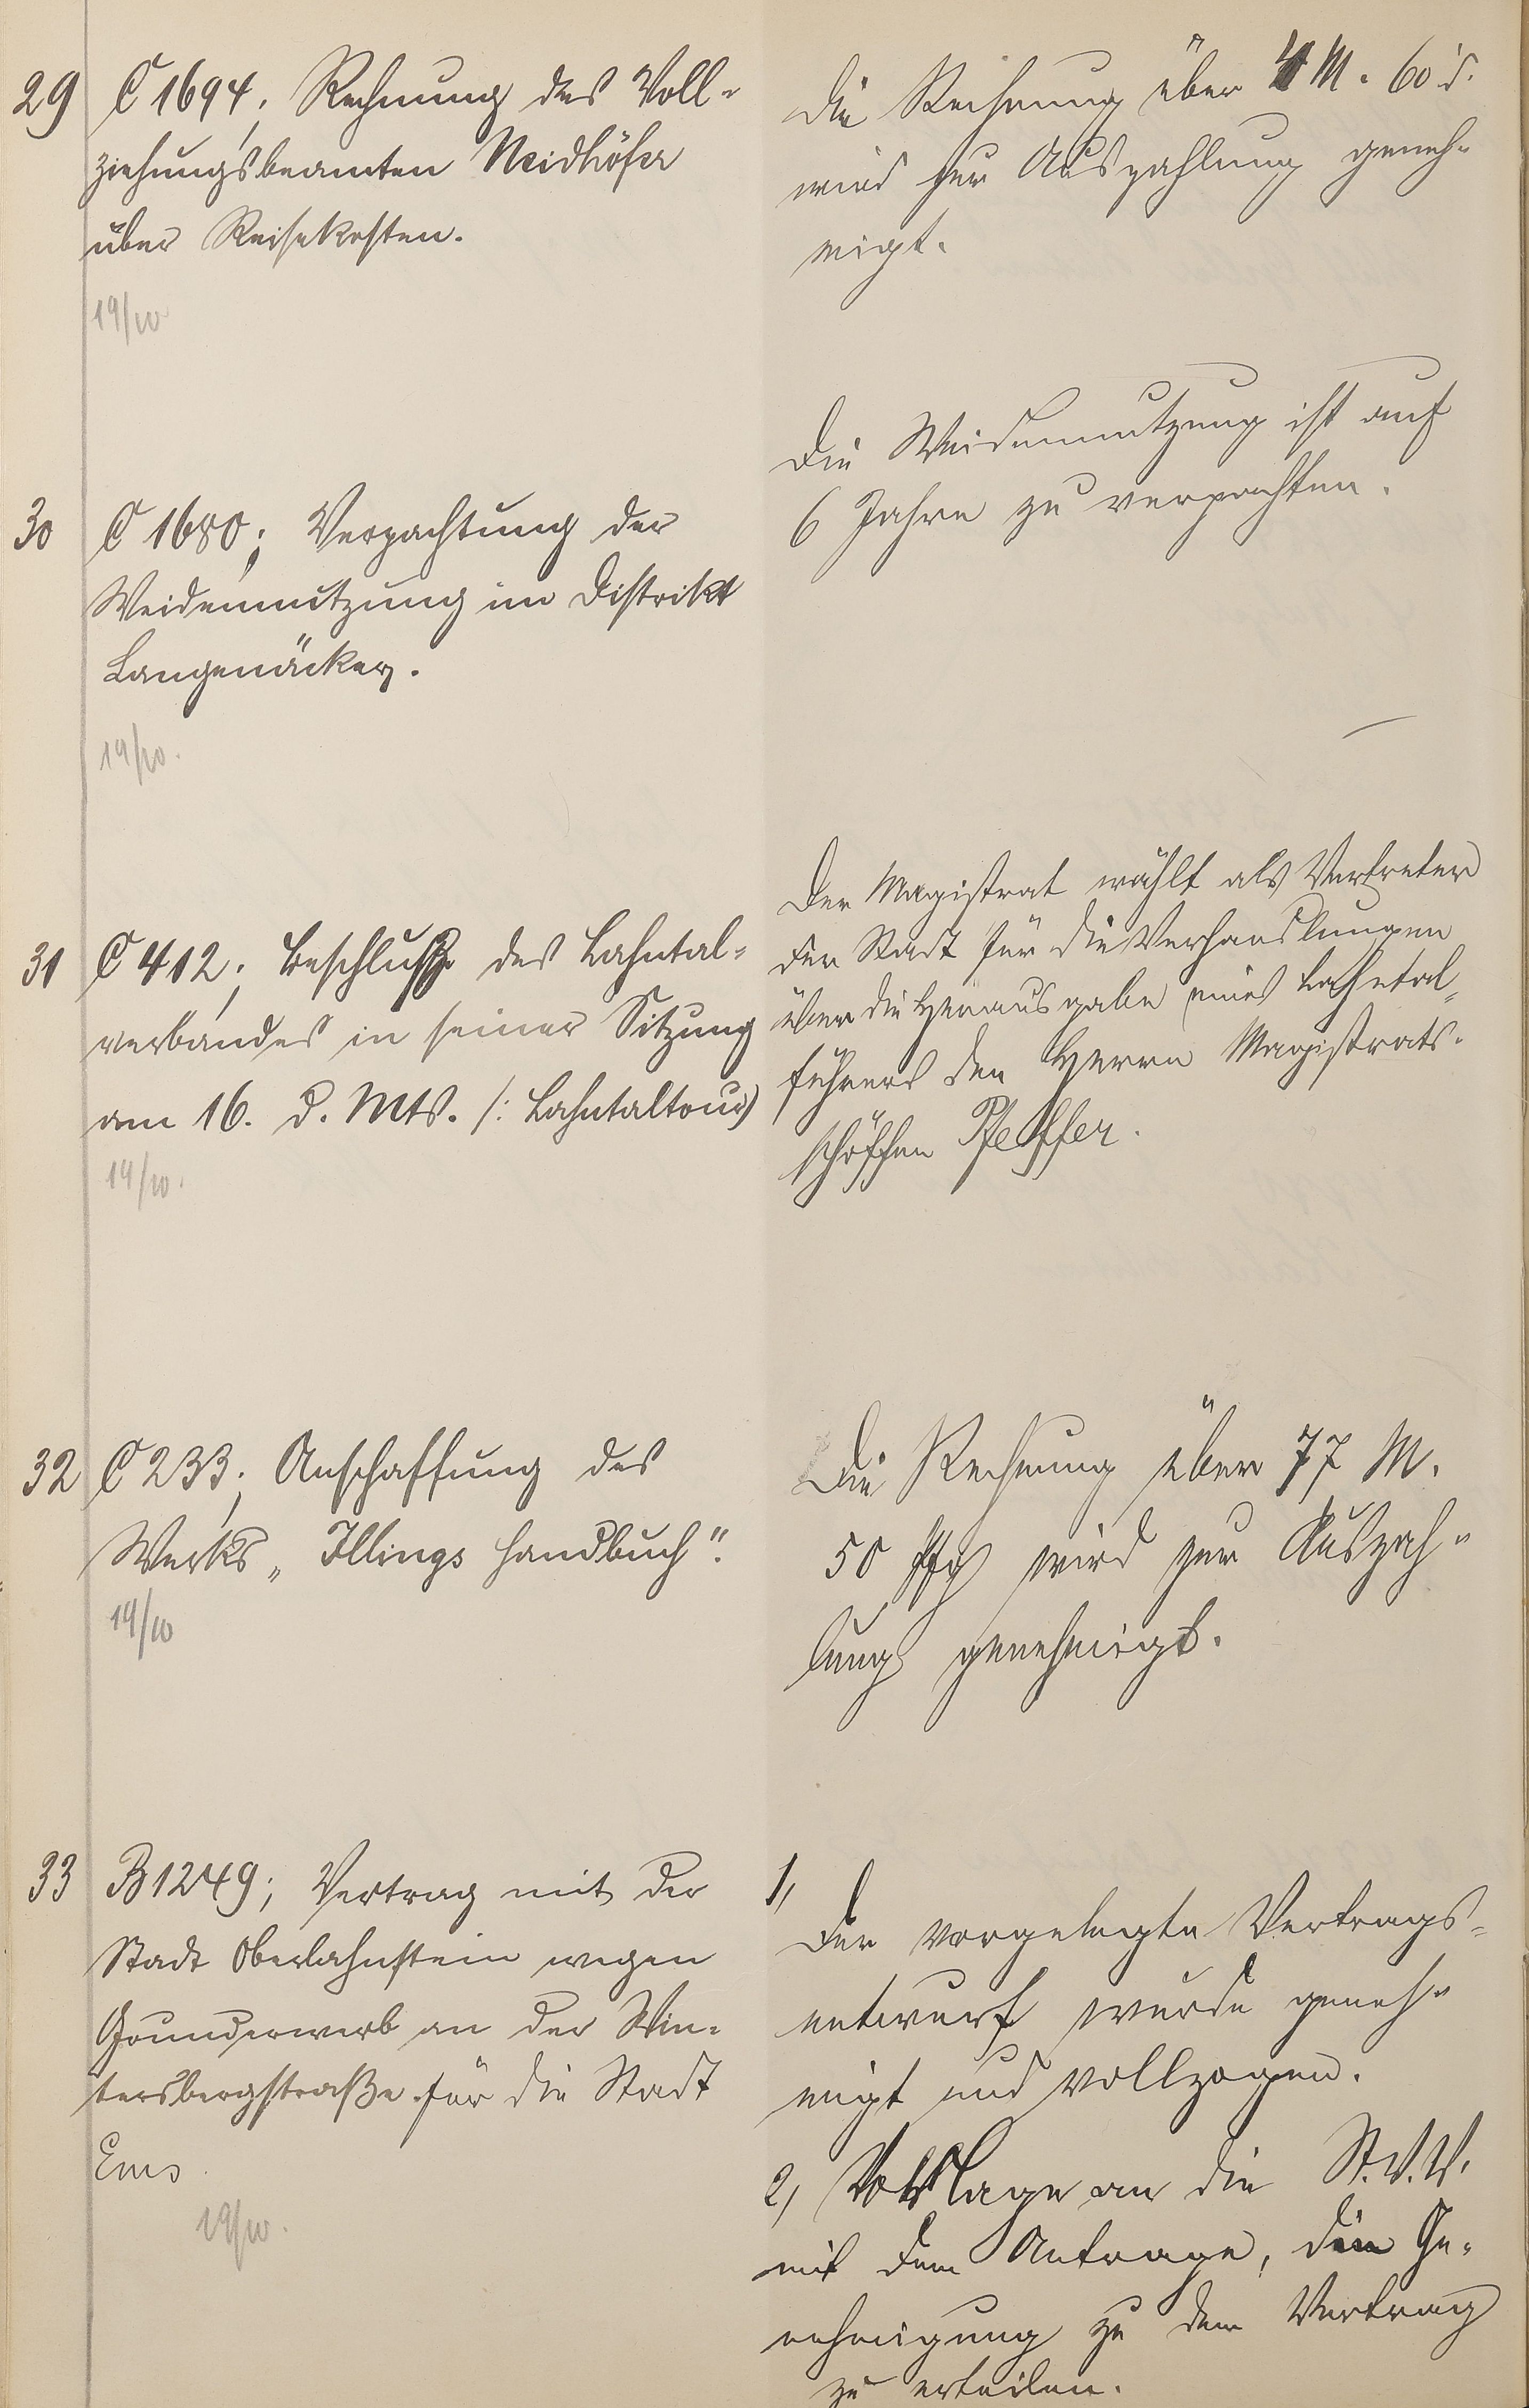 29
C 1694; Rechnung des Voll-
ziehungsbeamten Neidhöfer
über Reisekosten.
19/10
Die Rechnung über 4 M. 60 d.
wird zur Auszahlung geneh-
migt.
30
C 1680; Verpachtung der
Weidennutzung im Distrikt
Langenäcker.
19/10.
Die Weidennutzung ist auf
6 Jahre zu verpachten.
31
C 412; Beschluß des Lahntal-
verbandes in seiner Sitzung
am 16. d. Mts. (: Lahntaltour)
19/10.
Der Magistrat wählt als Vertreter
der Stadt für die Verhandlungen
über die Herausgabe eines Lahntal-
führers den Herrn Magistrats-
schöffen Pfeiffer.
32
C 233; Anschaffung des
Werks „Illings Handbuch".
19/10
Die Rechnung über 77 M.
50 Pfg wird zur Auszah-
lung genehmigt.
33
B 1249; Vertrag mit der
Stadt Oberlahnstein wegen
Grunderwerb an der Win-
tersbergstraße für die Stadt
Ems.
19/10.
1,
Der vorgelegte Vertrags-
entwurf wurde geneh-
migt und vollzogen.
2, Vorlage an die St.V.V.
mit dem Antrage, die Ge-
nehmigung zu dem Vertrag
zu erteilen.